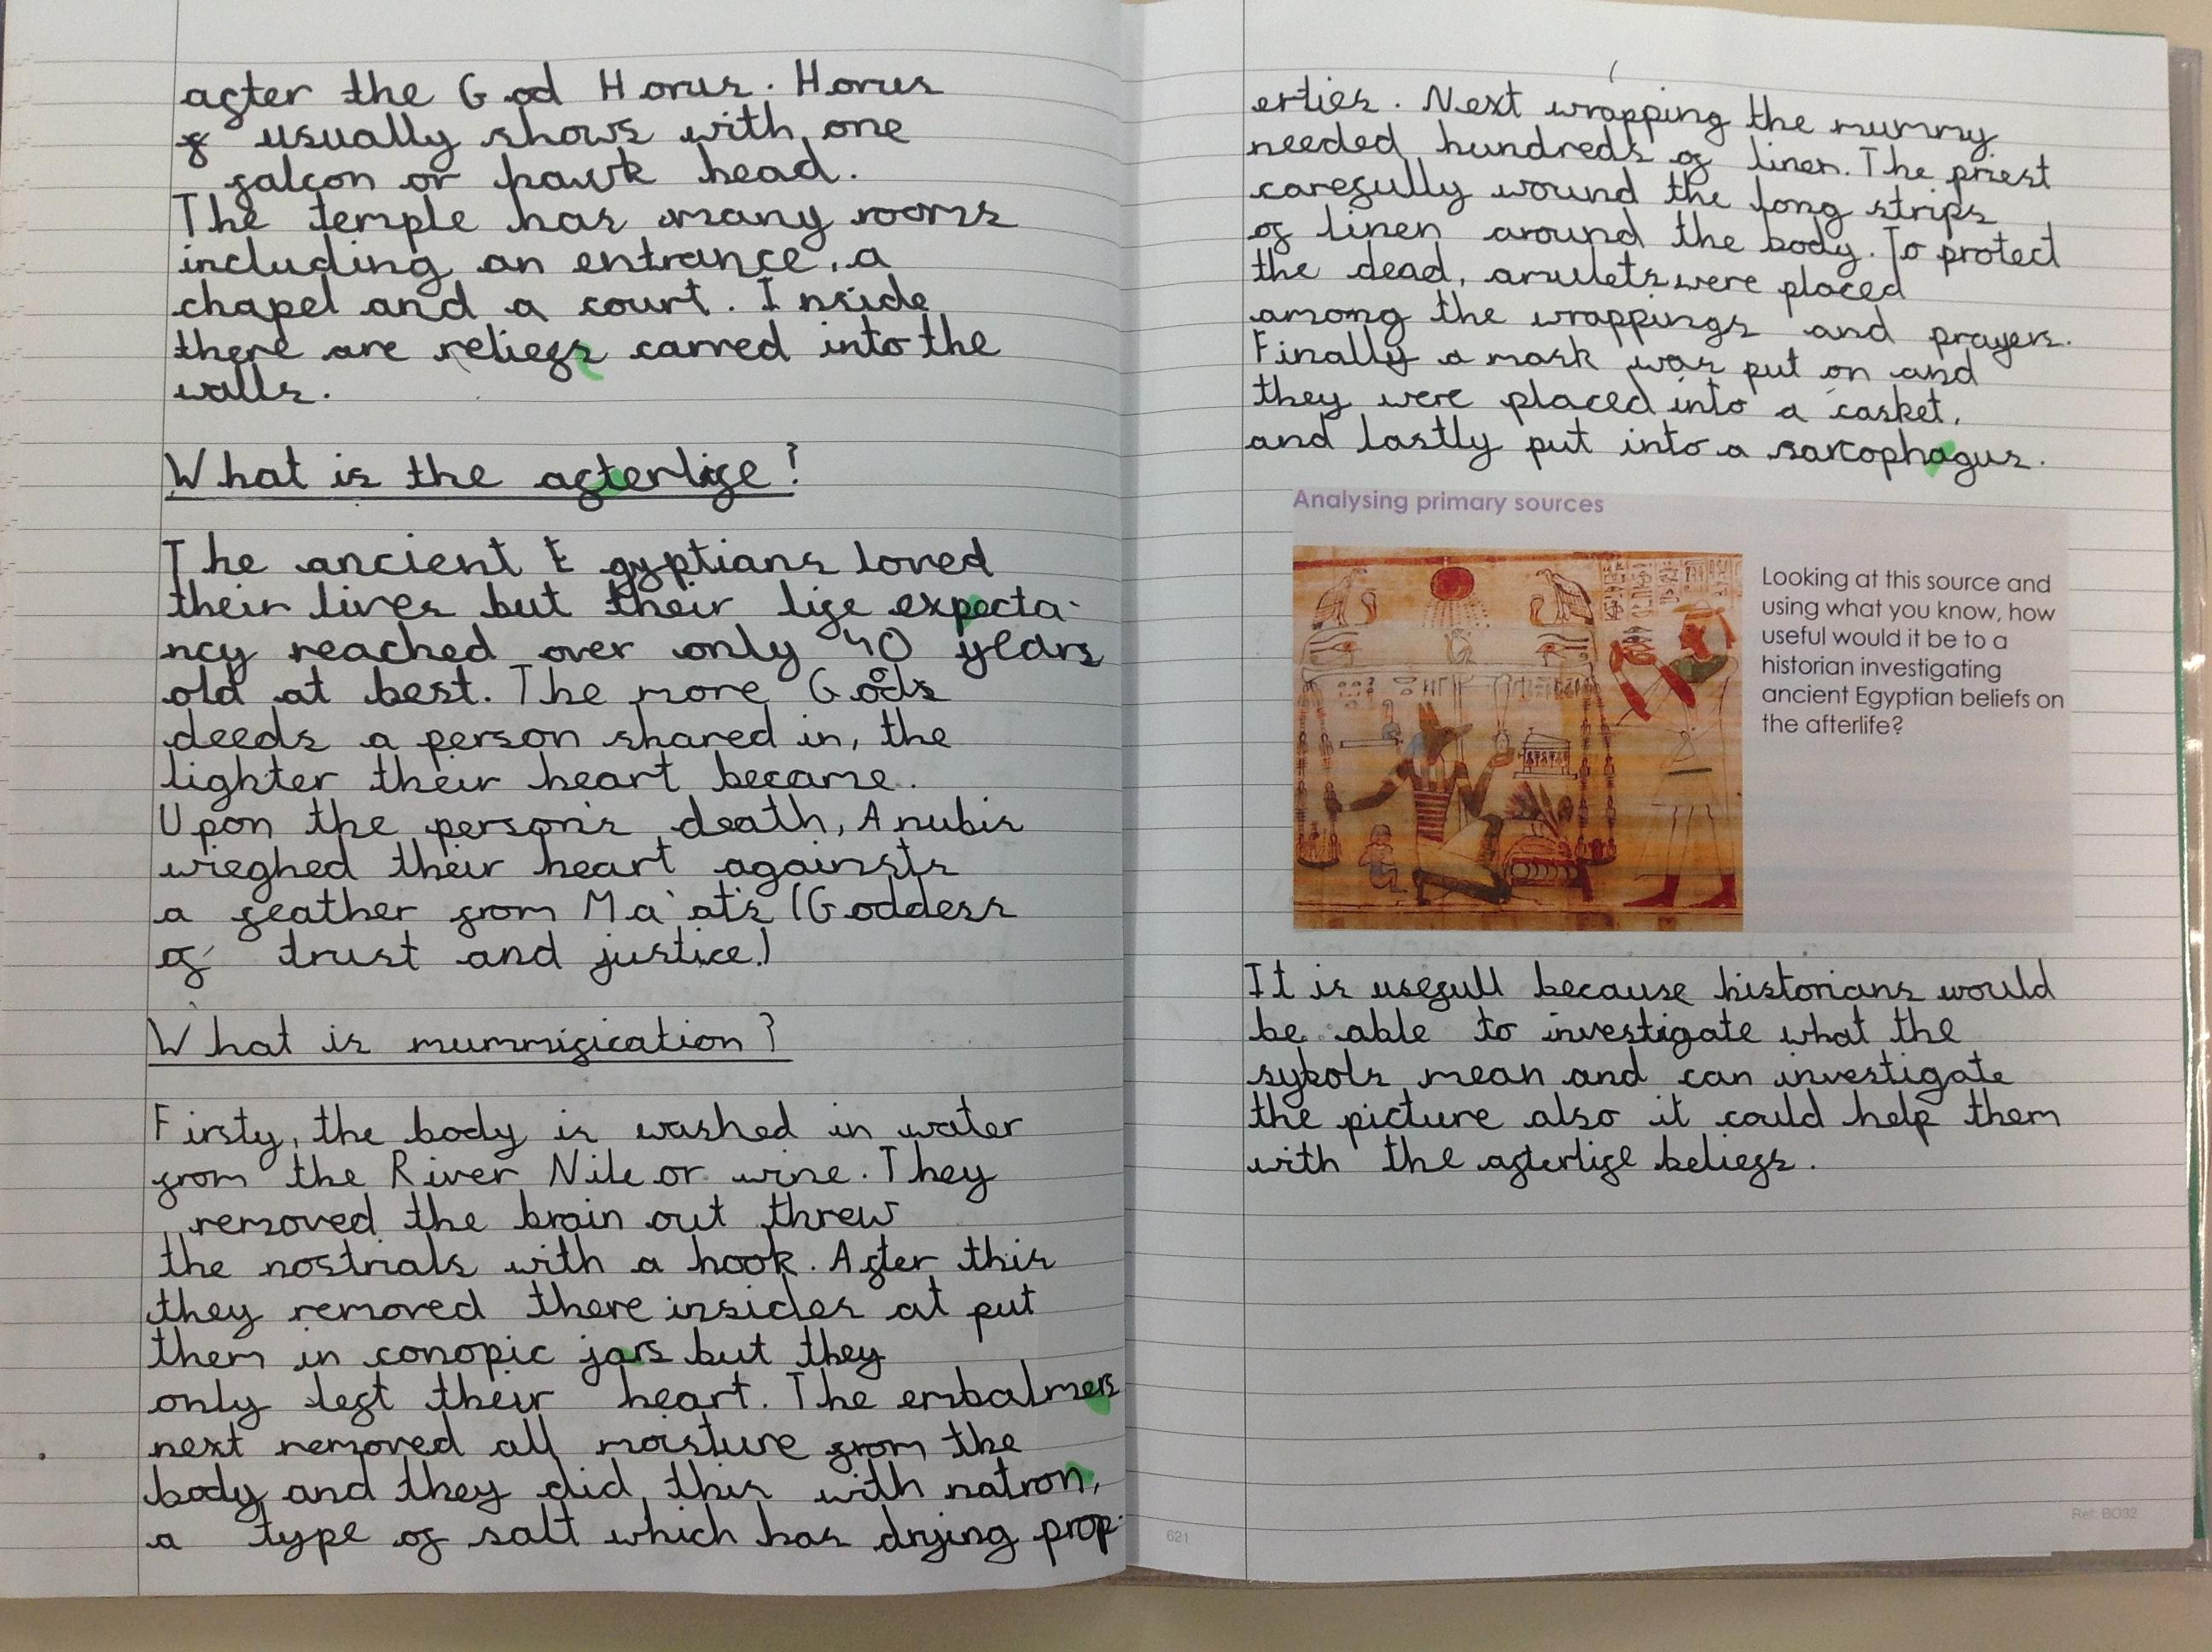 after the God Horus. Horus
usually shows with one
falcon or hawk head.
The temple has many rooms
including an entrance, a
chapel and a court. Inside
there are reliefs carved into the
walls.
What is the afterlife?
The ancient Egyptians loved
their lives but their life expecta-
ncy reached over only 40 years
old at best. The more Gods
deeds a person shared in, the
lighter their heart became.
Upon the person's death, Anubis
wieghed their heart againsts
a feather from Ma'at's (Goddess
of trust and justice.)
What is mummification?
Firsty, the body is washed in water
from the River Nile or wine. They
removed the brain out threw
the nostrials with a hook. After this
they removed there insides at put
them in conopic jars but they
only left their heart. The embalmers
next removed all moisture from the
body and they did this with natron,
a type of salt which has drying prop-
erties. Next wrapping the mummy
needed hundreds of linen. The priest
carefully wound the long strips
of linen around the body. To protect
the dead, amulets were placed
among the wrappings and prayers.
Finally a mask was put on and
they were placed into a casket,
and lastly put into a sarcophagus.
Analysing primary sources
Looking at this source and
using what you know, how
useful would it be to a
historian investigating
ancient Egyptian beliefs on
the afterlife?
It is usefull because historians would
be able to investigate what the
sybols mean and can investigate
the picture also it could help them
with the afterlife beliefs.
621
Ref: BO32